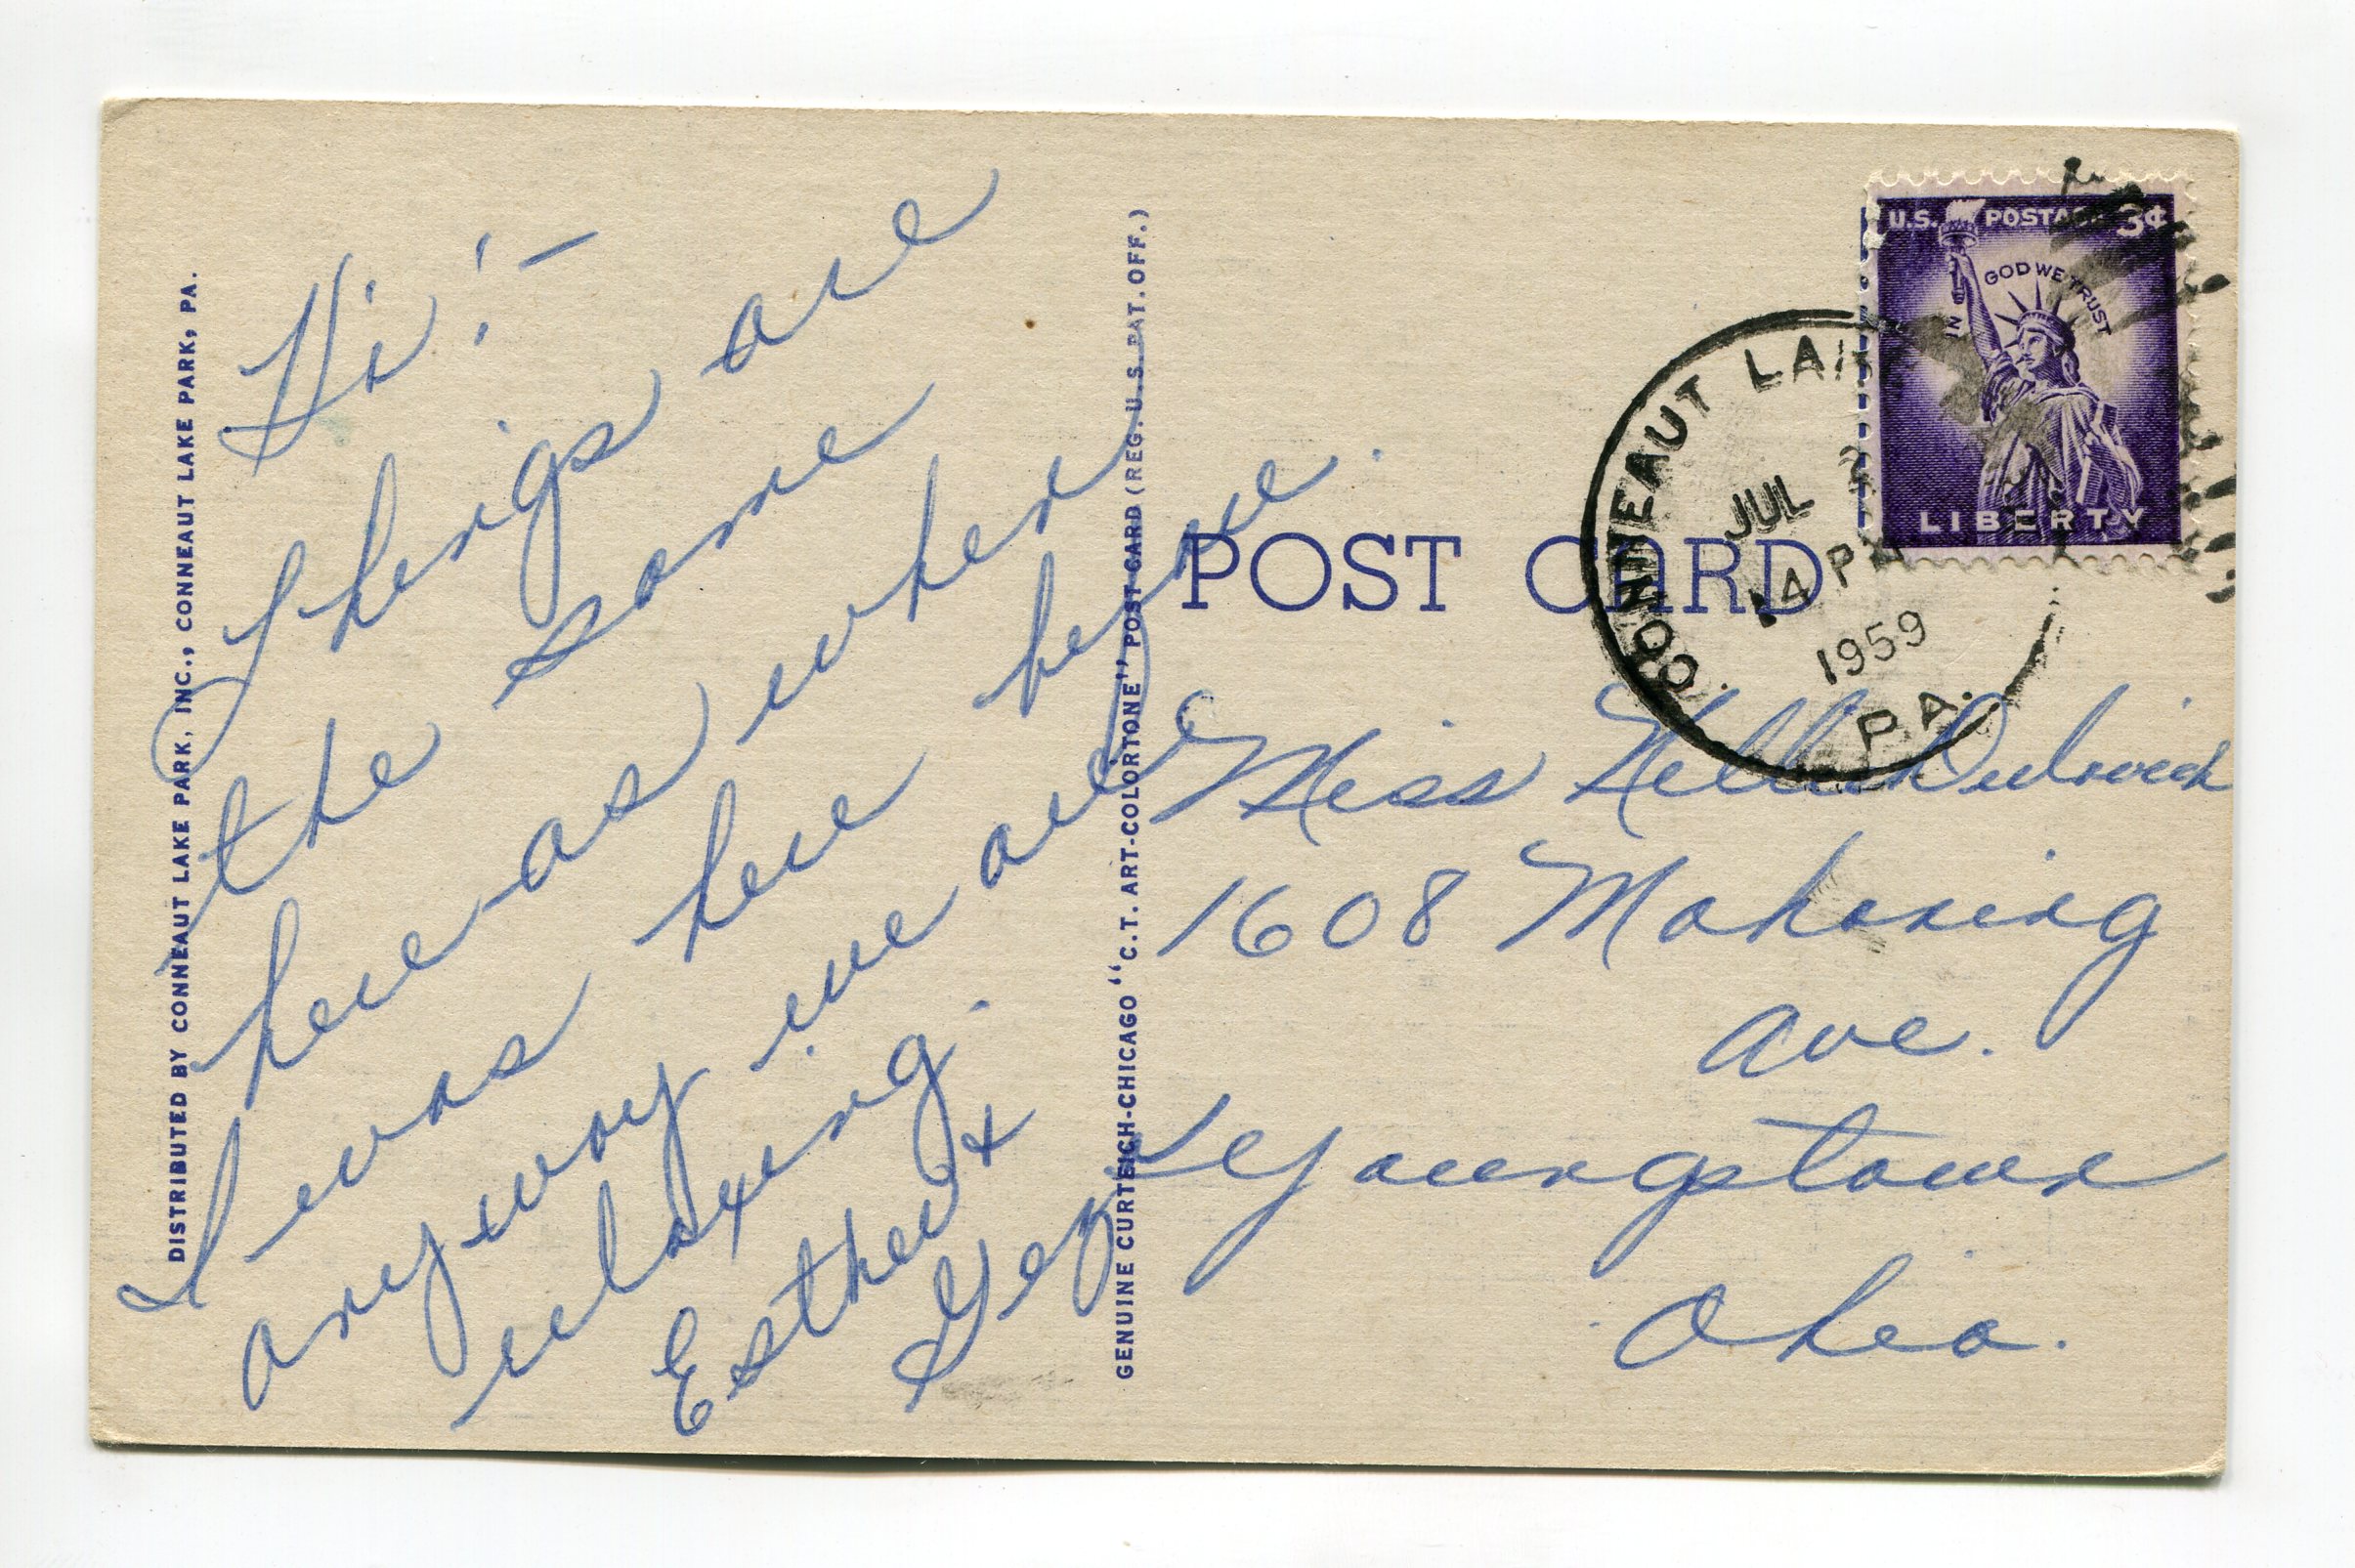 DISTRIBUTED BY CONNEAUT LAKE PARK, INC., CONNEAUT LAKE PARK, PA.
Hi! -
Things are
the same
here as when
I was here before.
anyway we are
relaxing.
Esther +
Geo
GENUINE CURTEICH-CHICAGO "C.T. ART-COLORTONE" POST CARD (REG. U.S. PAT. OFF.)
POST CARD
U.S. POSTAGE 3¢
IN GOD WE TRUST
LIBERTY
CONNEAUT LAKE
JUL
PM
1959
PA.
Miss Nellie
1608 Mahoning
Ave.
Youngstown
Ohio.